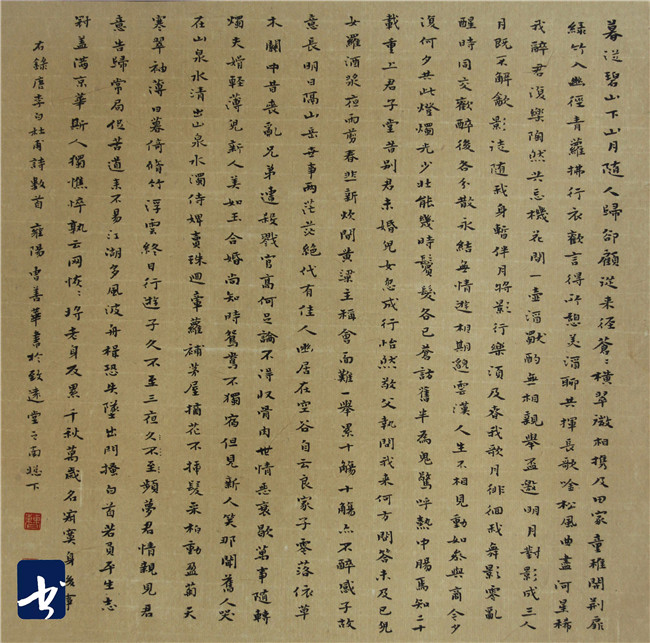 暮從碧山下山月隨人歸卻顧從來徑蒼〻橫翠微相攜及田家童稚開荊扉
綠竹入幽徑青蘿拂行衣歡言得所憩美酒聊共揮長歌吟松風曲盡河星稀
我醉君復樂陶然共忘機花間一壺酒獨酌無相親舉盃邀明月對影成三人
月既不解飲影徒隨我身暫伴月將影行樂須及春我歌月徘徊我舞影零亂
醒時同交歡醉後各分散永結無情遊相期邈雲漢人生不相見動如參與商今夕
復何夕共此燈燭光少壯能幾時鬢髮各已蒼訪舊半為鬼驚呼熱中腸焉知二十
載重上君子堂昔別君未婚兒女忽成行怡然敬父執問我來何方問答未及已兒
女羅酒漿夜雨剪春韭新炊間黃粱主稱會面難一舉累十觴十觴亦不醉感子故
意長明日隔山岳世事兩茫茫絕代有佳人幽居在空谷自云良家子零落依草
木關中昔喪亂兄弟遭殺戮官高何足論不得收骨肉世情惡衰歇萬事隨轉
燭夫婿輕薄兒新人美如玉合婚尚知時鴛鴦不獨宿但見新人笑那聞舊人哭
在山泉水清出山泉水濁侍婢賣珠迴牽蘿補茅屋摘花不插髮采柏動盈掬天
寒翠袖薄日暮倚脩竹浮雲終日行遊子久不至三夜久不至頻夢君情親見君
意告歸常局促苦道來不易江湖多風波舟楫恐失墜出門搔白首若負平生志
冠蓋滿京華斯人獨憔悴孰云网恢〻將老身反累千秋萬歲名寂寞身後事
右錄唐李白杜甫詩數首雍陽曹善華書於致遠堂之南窗下